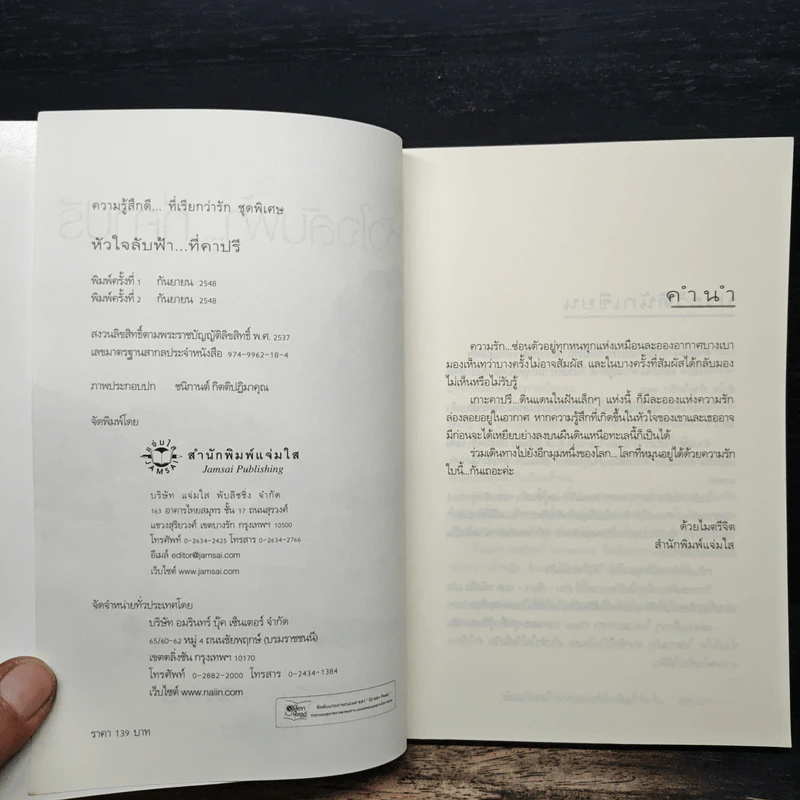 ความรู้สึกดี... ที่เรียกว่ารัก ชุดพิเศษ
หัวใจลับฟ้า...ที่คาปรี
พิมพ์ครั้งที่ 1 กันยายน 2548
พิมพ์ครั้งที่ 2 กันยายน 2548
สงวนลิขสิทธิ์ตามพระราชบัญญัติลิขสิทธิ์ พ.ศ. 2537
เลขมาตรฐานสากลประจำหนังสือ 974-9962-18-4
ภาพประกอบปก ชนิกานต์ กิตติปฏิมาคุณ
จัดพิมพ์โดย
แจ่มใส
JAMSAI
สำนักพิมพ์แจ่มใส
Jamsai Publishing
บริษัท แจ่มใส พับลิชชิ่ง จำกัด
163 อาคารไทยสมุทร ชั้น 17 ถนนสุรวงศ์
แขวงสุริยวงศ์ เขตบางรัก กรุงเทพฯ 10500
โทรศัพท์ 0-2634-2425 โทรสาร 0-2634-2766
อีเมล์ editor@jamsai.com
เว็บไซต์ www.jamsai.com
จัดจำหน่ายทั่วประเทศโดย
บริษัท อมรินทร์ บุ๊ค เซ็นเตอร์ จำกัด
65/60-62 หมู่ 4 ถนนชัยพฤกษ์ (บรมราชชนนี)
เขตตลิ่งชัน กรุงเทพฯ 10170
โทรศัพท์ 0-2882-2000 โทรสาร 0-2434-1384
เว็บไซต์ www.naiin.com
ราคา 139 บาท
คำนำ
ความรัก...ซ่อนตัวอยู่ทุกหนทุกแห่งเหมือนละอองอากาศบางเบา
มองเห็นทว่าบางครั้งไม่อาจสัมผัส และในบางครั้งที่สัมผัสได้กลับมอง
ไม่เห็นหรือไม่รับรู้
เกาะคาปรี...ดินแดนในฝันเล็กๆ แห่งนี้ ก็มีละอองแห่งความรัก
ล่องลอยอยู่ในอากาศ หากความรู้สึกที่เกิดขึ้นในหัวใจของเขาและเธออาจ
มีก่อนจะได้เหยียบย่างลงบนผืนดินเหนือทะเลนี้ก็เป็นได้
ร่วมเดินทางไปยังอีกมุมหนึ่งของโลก...โลกที่หมุนอยู่ได้ด้วยความรัก
ใบนี้...กันเถอะค่ะ
ด้วยไมตรีจิต
สำนักพิมพ์แจ่มใส